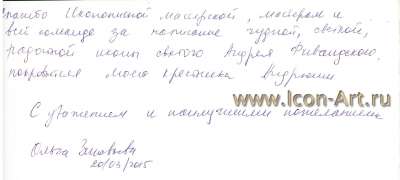 спасибо Иконописной мастерской, мастерам и
всей команде за написание чудной, светлой,
радостной иконы святого Андрея Фиваидского,
покровителя моего крестника Андрюши
www.Icon-Art.ru
С уважением и наилучшими пожеланиями
Ольга
20/03/2015